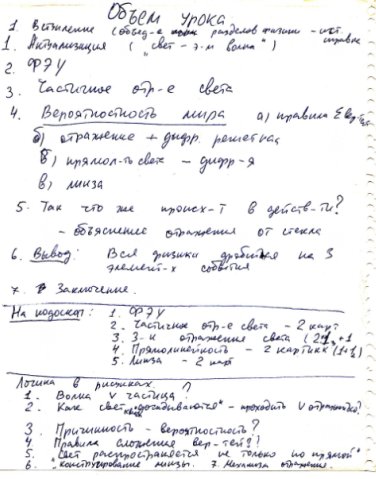 Объем урока
1. Вступление (объед-е разделов физики - ист. справка
1. Актуализация ("свет - э-м волна")
2. ФЭУ
3. Частичное отр-е света
4. Вероятностность мира а) правила
б) отражение + дифр. решетка
в) прямол-ть света - дифр-я
в) линза
5. Так что же происх-т в действ-ти?
- объяснение отражения от стекла
6. Вывод: Вся физика дробится на 3
элемент-х события
7. Заключение.
На кодоскоп: 1. ФЭУ
2. Частичное отр-е света - 2 карт
3. З-н отражения света (2+1
4. Прямолинейность - 2 картинки (1+1)
5. Линза - 2 карт
Логика в рисунках
1. Волна V частица?
2. Как свет "догадывается" - проходить V отражаться?
3. Причинность - вероятность?
4. Правила сложения вер-тей?
5. Свет распространяется не только по прямой
6. "конструирование линзы. 7. Механизм отражения.